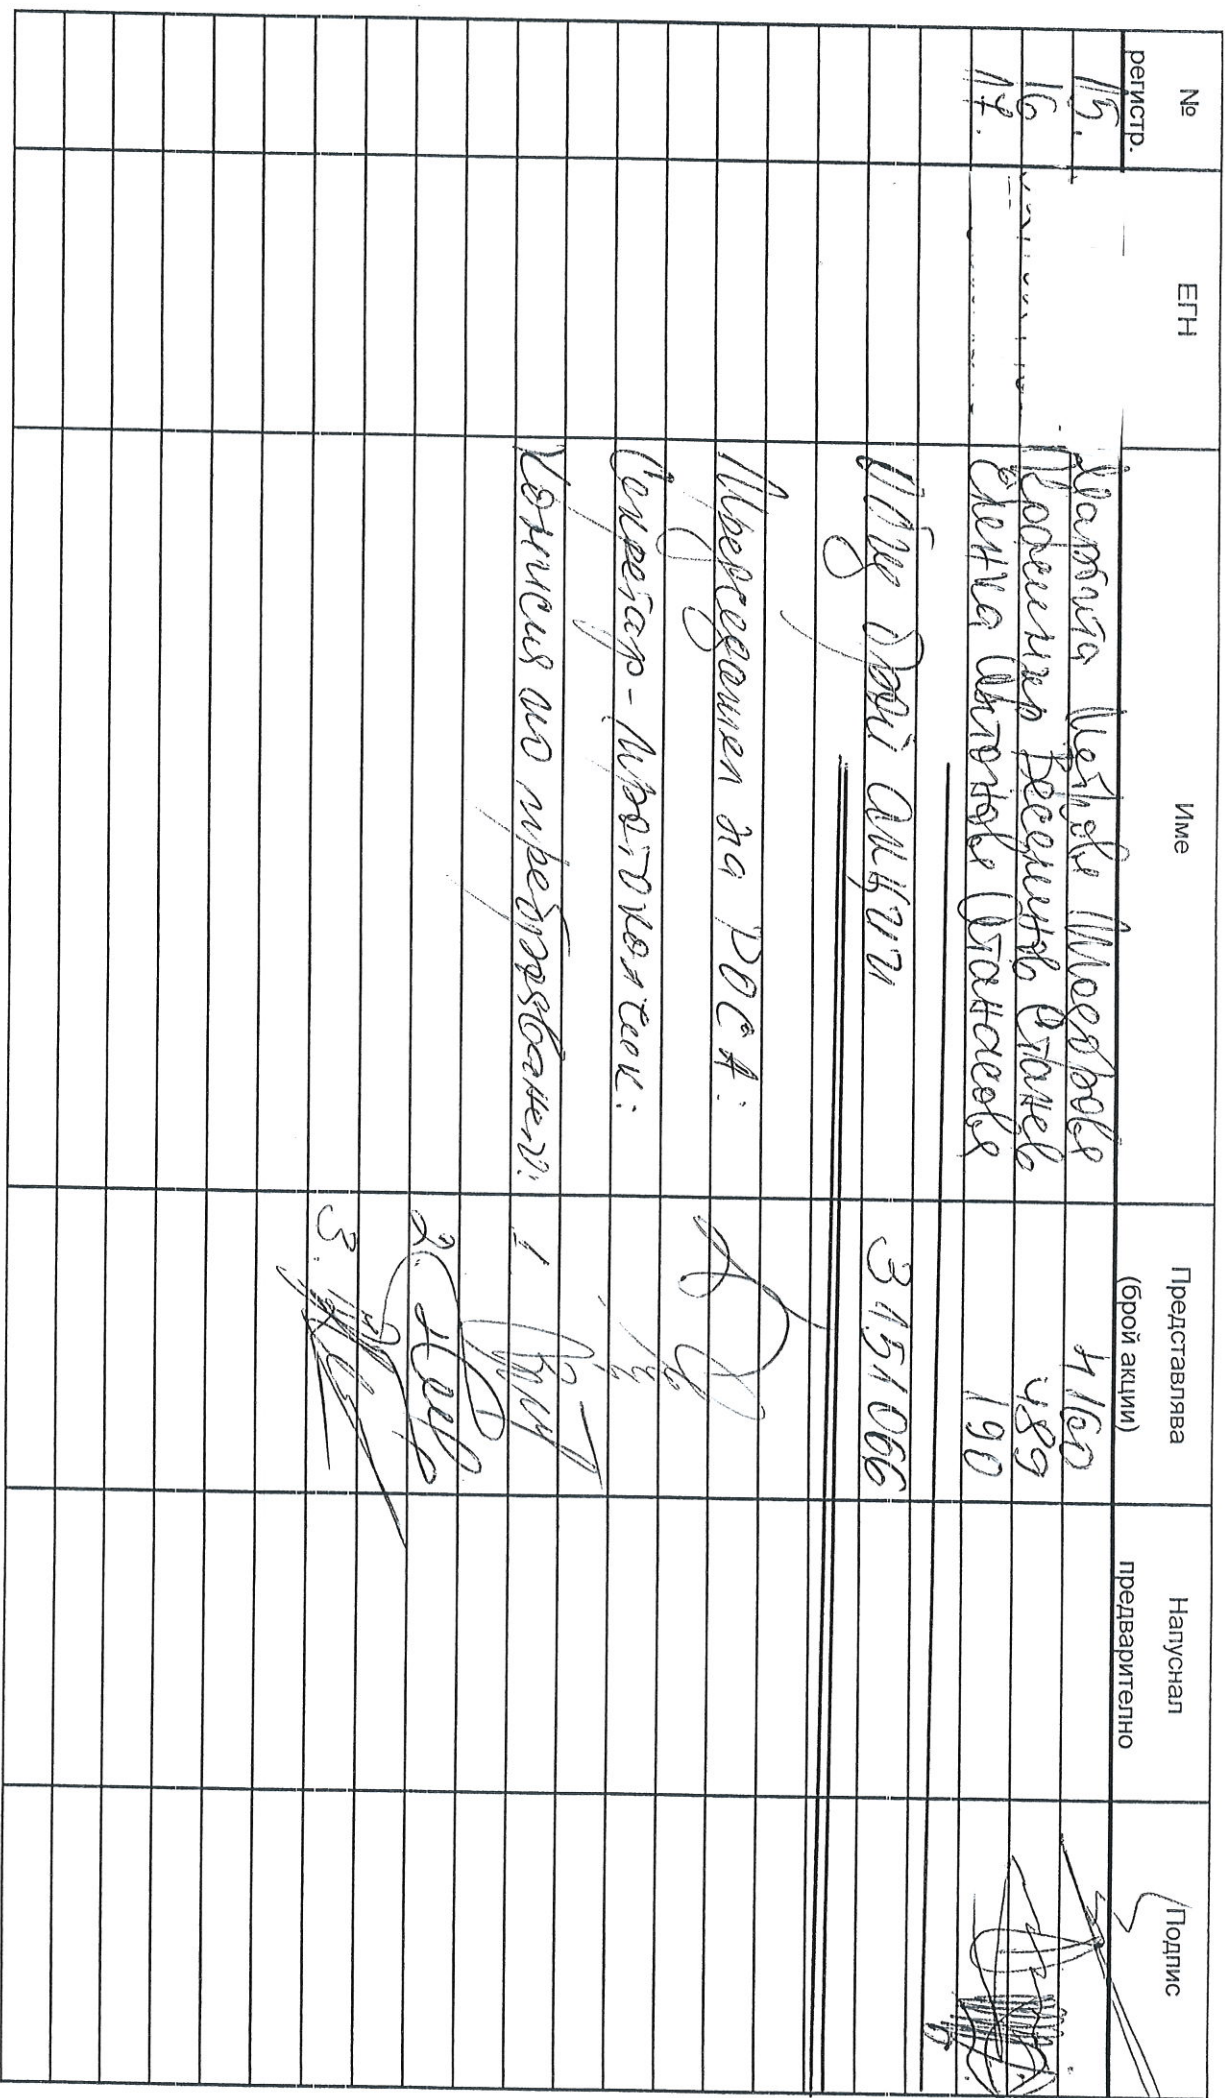 № регистр. ЕГН Име Представлява (брой акции) Напуснал предварително Подпис
15. Петрова Тодорова 4160
16 Веселинов Станев 489
17. Антонова Атанасова 190
Общ брой акции 3151066
Председател на РОСА:
Секретар-Протоколчик:
Комисия по преброяването: 1.
2.
3.